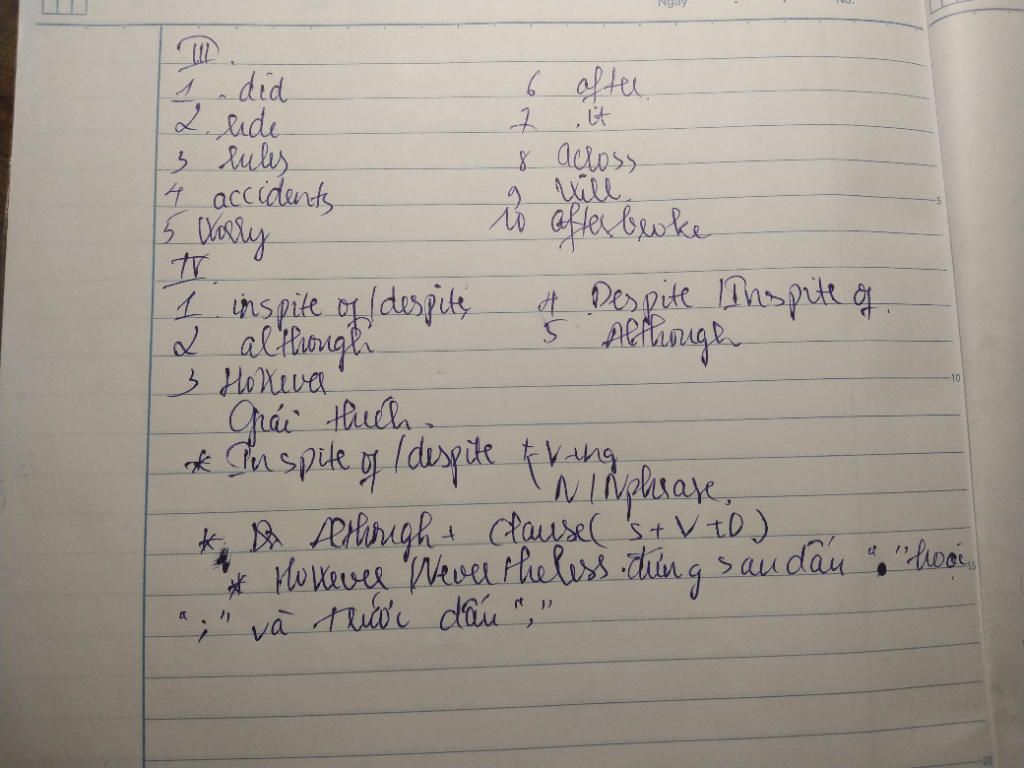 Ngày
No.
III.
1. did
2. ride
3 rules
4 accidents
5 Worry
6 after.
7. it
8 across
9 will
10 after broke
IV.
1. inspite of / despite
2 although
3 However
4. Despite / Inspite of.
5 Although
Giải thích.
* Inspite of / despite + V-ing
N / Nphrase.
* Although + clause ( S + V + O )
* However / Nevertheless. đứng sau dấu "." hoặc
";" và trước dấu ","
5
10
15
20